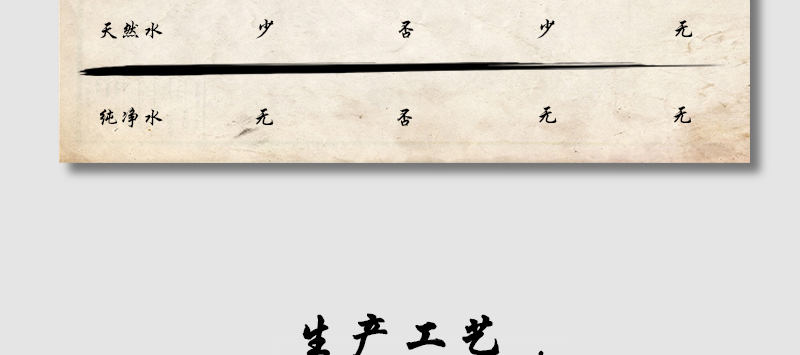 天然水 少 否 少 无
纯净水 无 否 无 无
生产工艺